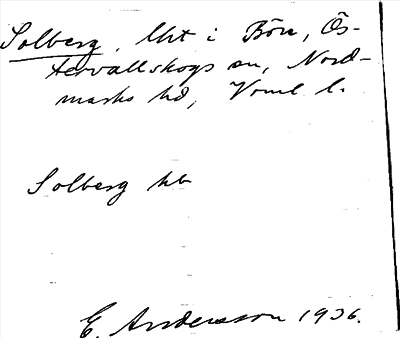 Solberg, Utt i Bön, Ös-
tervallskogs sn, Nord-
marks hd, Vrml l.
Solberg hb
E. Andersson 1936.